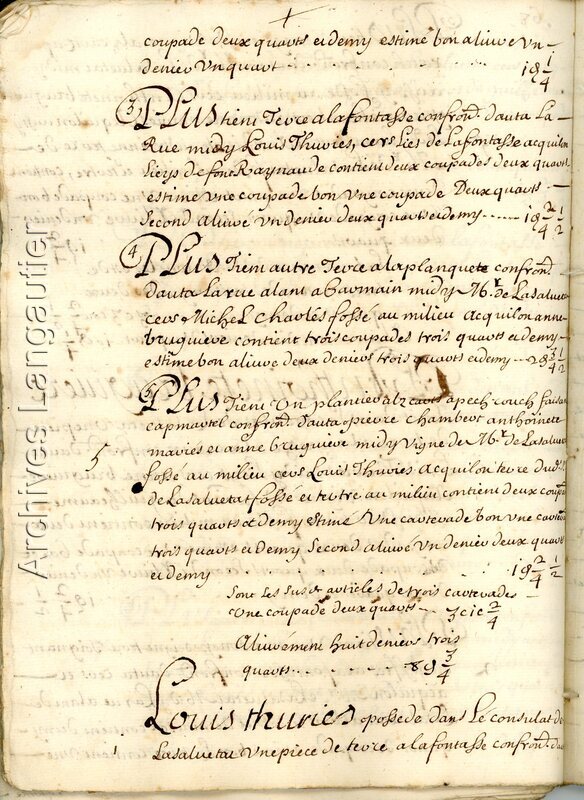 coupade deux quarts et demy estimé bon aliuré un
denier un quart . . . . 1 d 1/4
3 PLUS tient Terre a la fontasse confron. d'auta La
Rue midy Louis Thuries, cers Lies de Lafontasse acquilon
Sieys de font Raynaude contient deux coupades deux quarts
estime une coupade bon une coupade Deux quarts
Second aliuré Un denier deux quarts et demy ...... 1 d 2/4 1/2
4 PLUS Tient autre Terre a la planquete confron.
d'auta La rue alant a Gavmain midy Mr. de Lasaluetat
cers Michel charles fossé au milieu Acquilon anne
bruguiere contient trois coupades trois quarts et demy
estime bon aliuré deux deniers trois quarts et demy - 2 d 3/4 1/2
5 PLUS Tient Un plantier al z a pech rouch faisan
capmartel confron. d'auta pierre chambert anthoinete
maries et anne bruguiere midy Vigne de Mr. de Lasaluetat
fossé au milieu cers Louis Thuries acquilon terre dud. Sr.
de Lasaluetat fossé et tertre au milieu contient deux
trois quarts et demy estimé Une carterade bon Une
trois quarts et demy Second aliuré Un denier deux quarts
et demy . . . . 1 d 2/4 1/2
Sont Les Susd. articles de trois carterades
Une coupade deux quarts - 3 c 1 c 2/4
Aliurément huit deniers trois
quarts . . . . . 8 d 3/4
Louis thuries possede dans Le consulat de
1 Lasaluetat Une piece de terre a la fontasse confron. d'au
5
Archives Langautier